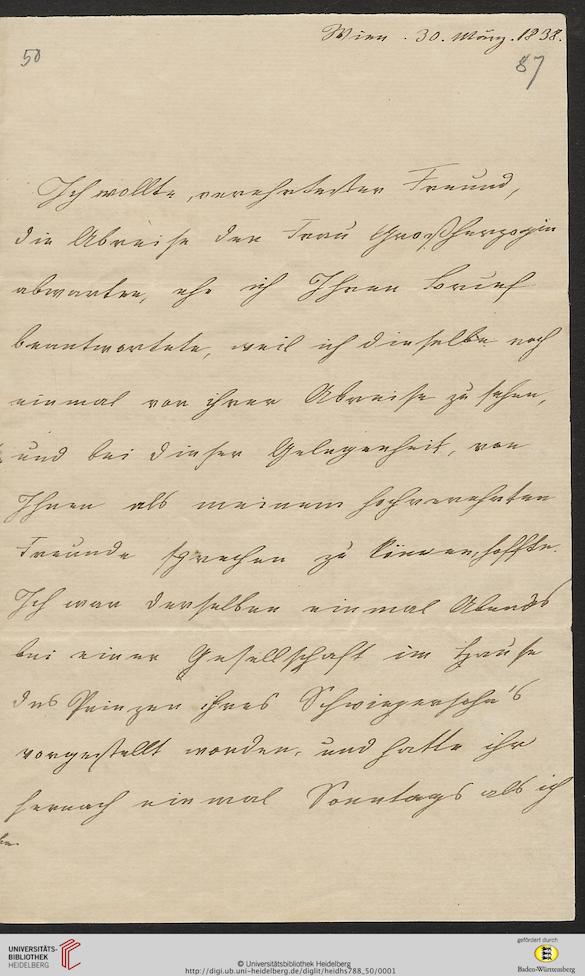 Wien. 30. März. 1838.
50
87
Ich wollte, verehrtester Freund,
die Abreise der Frau Großherzogin
abwarten, ehe ich Ihren Brief
beantwortete, weil ich dieselbe noch
einmal vor ihrer Abreise zu sehen,
und bei dieser Gelegenheit, von
Ihnen als meinem hochverehrten
Freunde sprechen zu können, hoffte.
Ich war derselben einmal Abends
bei einer Gesellschaft im Hause
des Prinzen ihres Schwiegersohn's
vorgestellt worden, und hatte ihr
hernach einmal Sonntags als ich
UNIVERSITÄTS-
BIBLIOTHEK
HEIDELBERG
© Universitätsbibliothek Heidelberg
http://digi.ub.uni-heidelberg.de/diglit/heidhs788_50/0001
gefördert durch
Baden-Württemberg